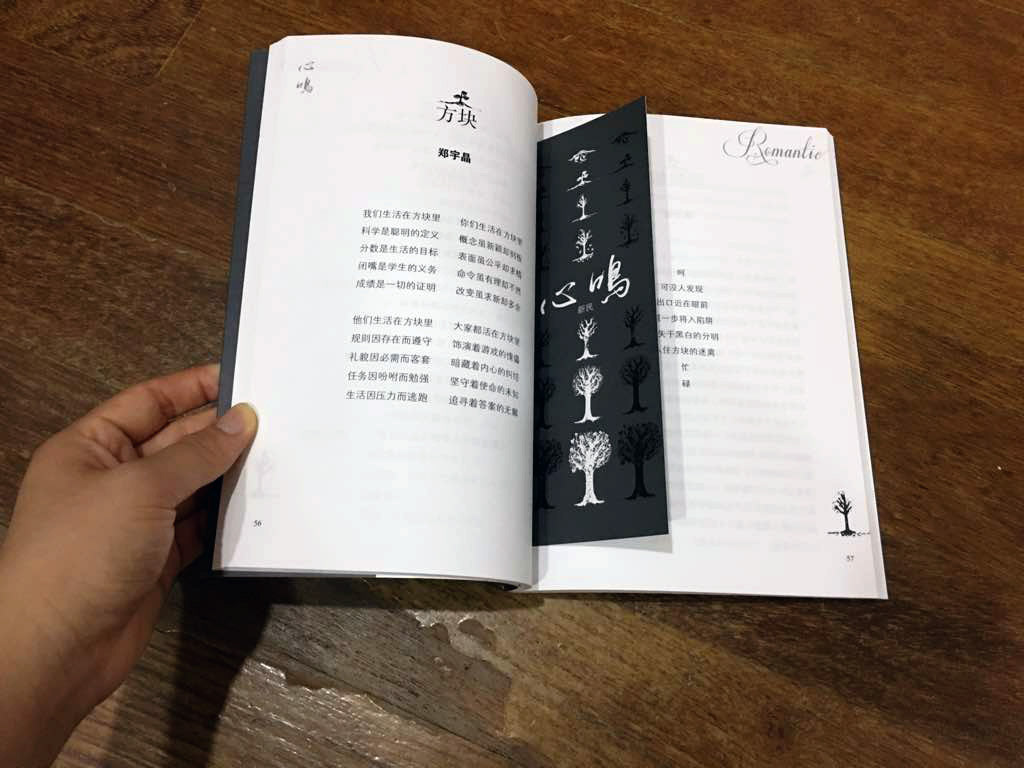 心
鳴
方块
郑宇晶
我们生活在方块里 你们生活在方块里
科学是聪明的定义 概念虽新颖却刻板
分数是生活的目标 表面虽公平却求精
闭嘴是学生的义务 命令虽有理却不然
成绩是一切的证明 改变虽求新却多余
他们生活在方块里 大家都活在方块里
规则因存在而遵守 饰演着游戏的傀儡
礼貌因必需而客套 暗藏着内心的纠结
任务因吩咐而勉强 坚守着使命的未知
生活因压力而逃跑 追寻着答案的无解
56
心鳴
新民
Romantic
呵
可没人发现
出口近在眼前
一步将入陷阱
失于黑白的分明
住方块的迷离
忙
碌
57